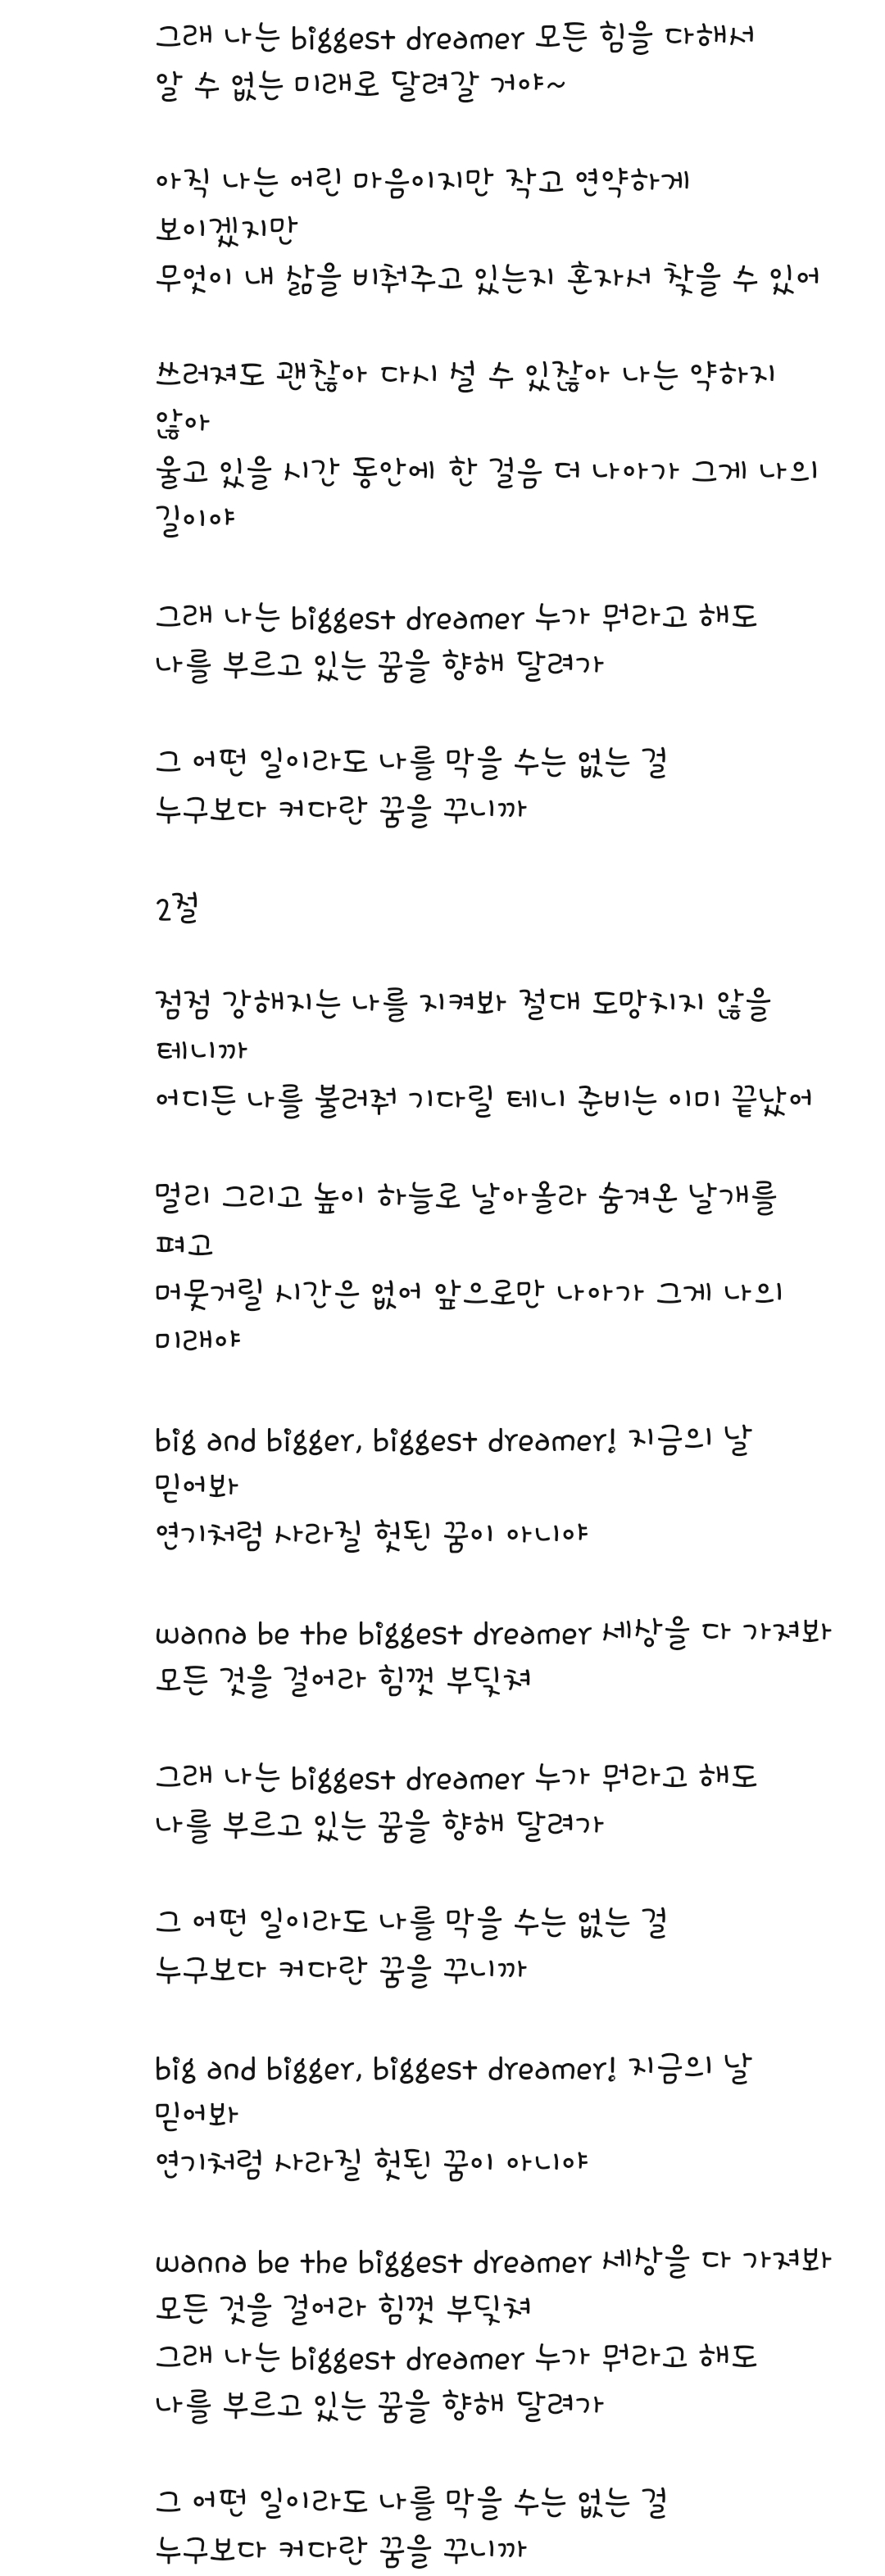 그래 나는 biggest dreamer 모든 힘을 다해서
알 수 없는 미래로 달려갈 거야~
아직 나는 어린 마음이지만 작고 연약하게
보이겠지만
무엇이 내 삶을 비춰주고 있는지 혼자서 찾을 수 있어
쓰러져도 괜찮아 다시 설 수 있잖아 나는 약하지
않아
울고 있을 시간 동안에 한 걸음 더 나아가 그게 나의
길이야
그래 나는 biggest dreamer 누가 뭐라고 해도
나를 부르고 있는 꿈을 향해 달려가
그 어떤 일이라도 나를 막을 수는 없는 걸
누구보다 커다란 꿈을 꾸니까
2절
점점 강해지는 나를 지켜봐 절대 도망치지 않을
테니까
어디든 나를 불러줘 기다릴 테니 준비는 이미 끝났어
멀리 그리고 높이 하늘로 날아올라 숨겨온 날개를
펴고
머뭇거릴 시간은 없어 앞으로만 나아가 그게 나의
미래야
big and bigger, biggest dreamer! 지금의 날
믿어봐
연기처럼 사라질 헛된 꿈이 아니야
wanna be the biggest dreamer 세상을 다 가져봐
모든 것을 걸어라 힘껏 부딪쳐
그래 나는 biggest dreamer 누가 뭐라고 해도
나를 부르고 있는 꿈을 향해 달려가
그 어떤 일이라도 나를 막을 수는 없는 걸
누구보다 커다란 꿈을 꾸니까
big and bigger, biggest dreamer! 지금의 날
믿어봐
연기처럼 사라질 헛된 꿈이 아니야
wanna be the biggest dreamer 세상을 다 가져봐
모든 것을 걸어라 힘껏 부딪쳐
그래 나는 biggest dreamer 누가 뭐라고 해도
나를 부르고 있는 꿈을 향해 달려가
그 어떤 일이라도 나를 막을 수는 없는 걸
누구보다 커다란 꿈을 꾸니까